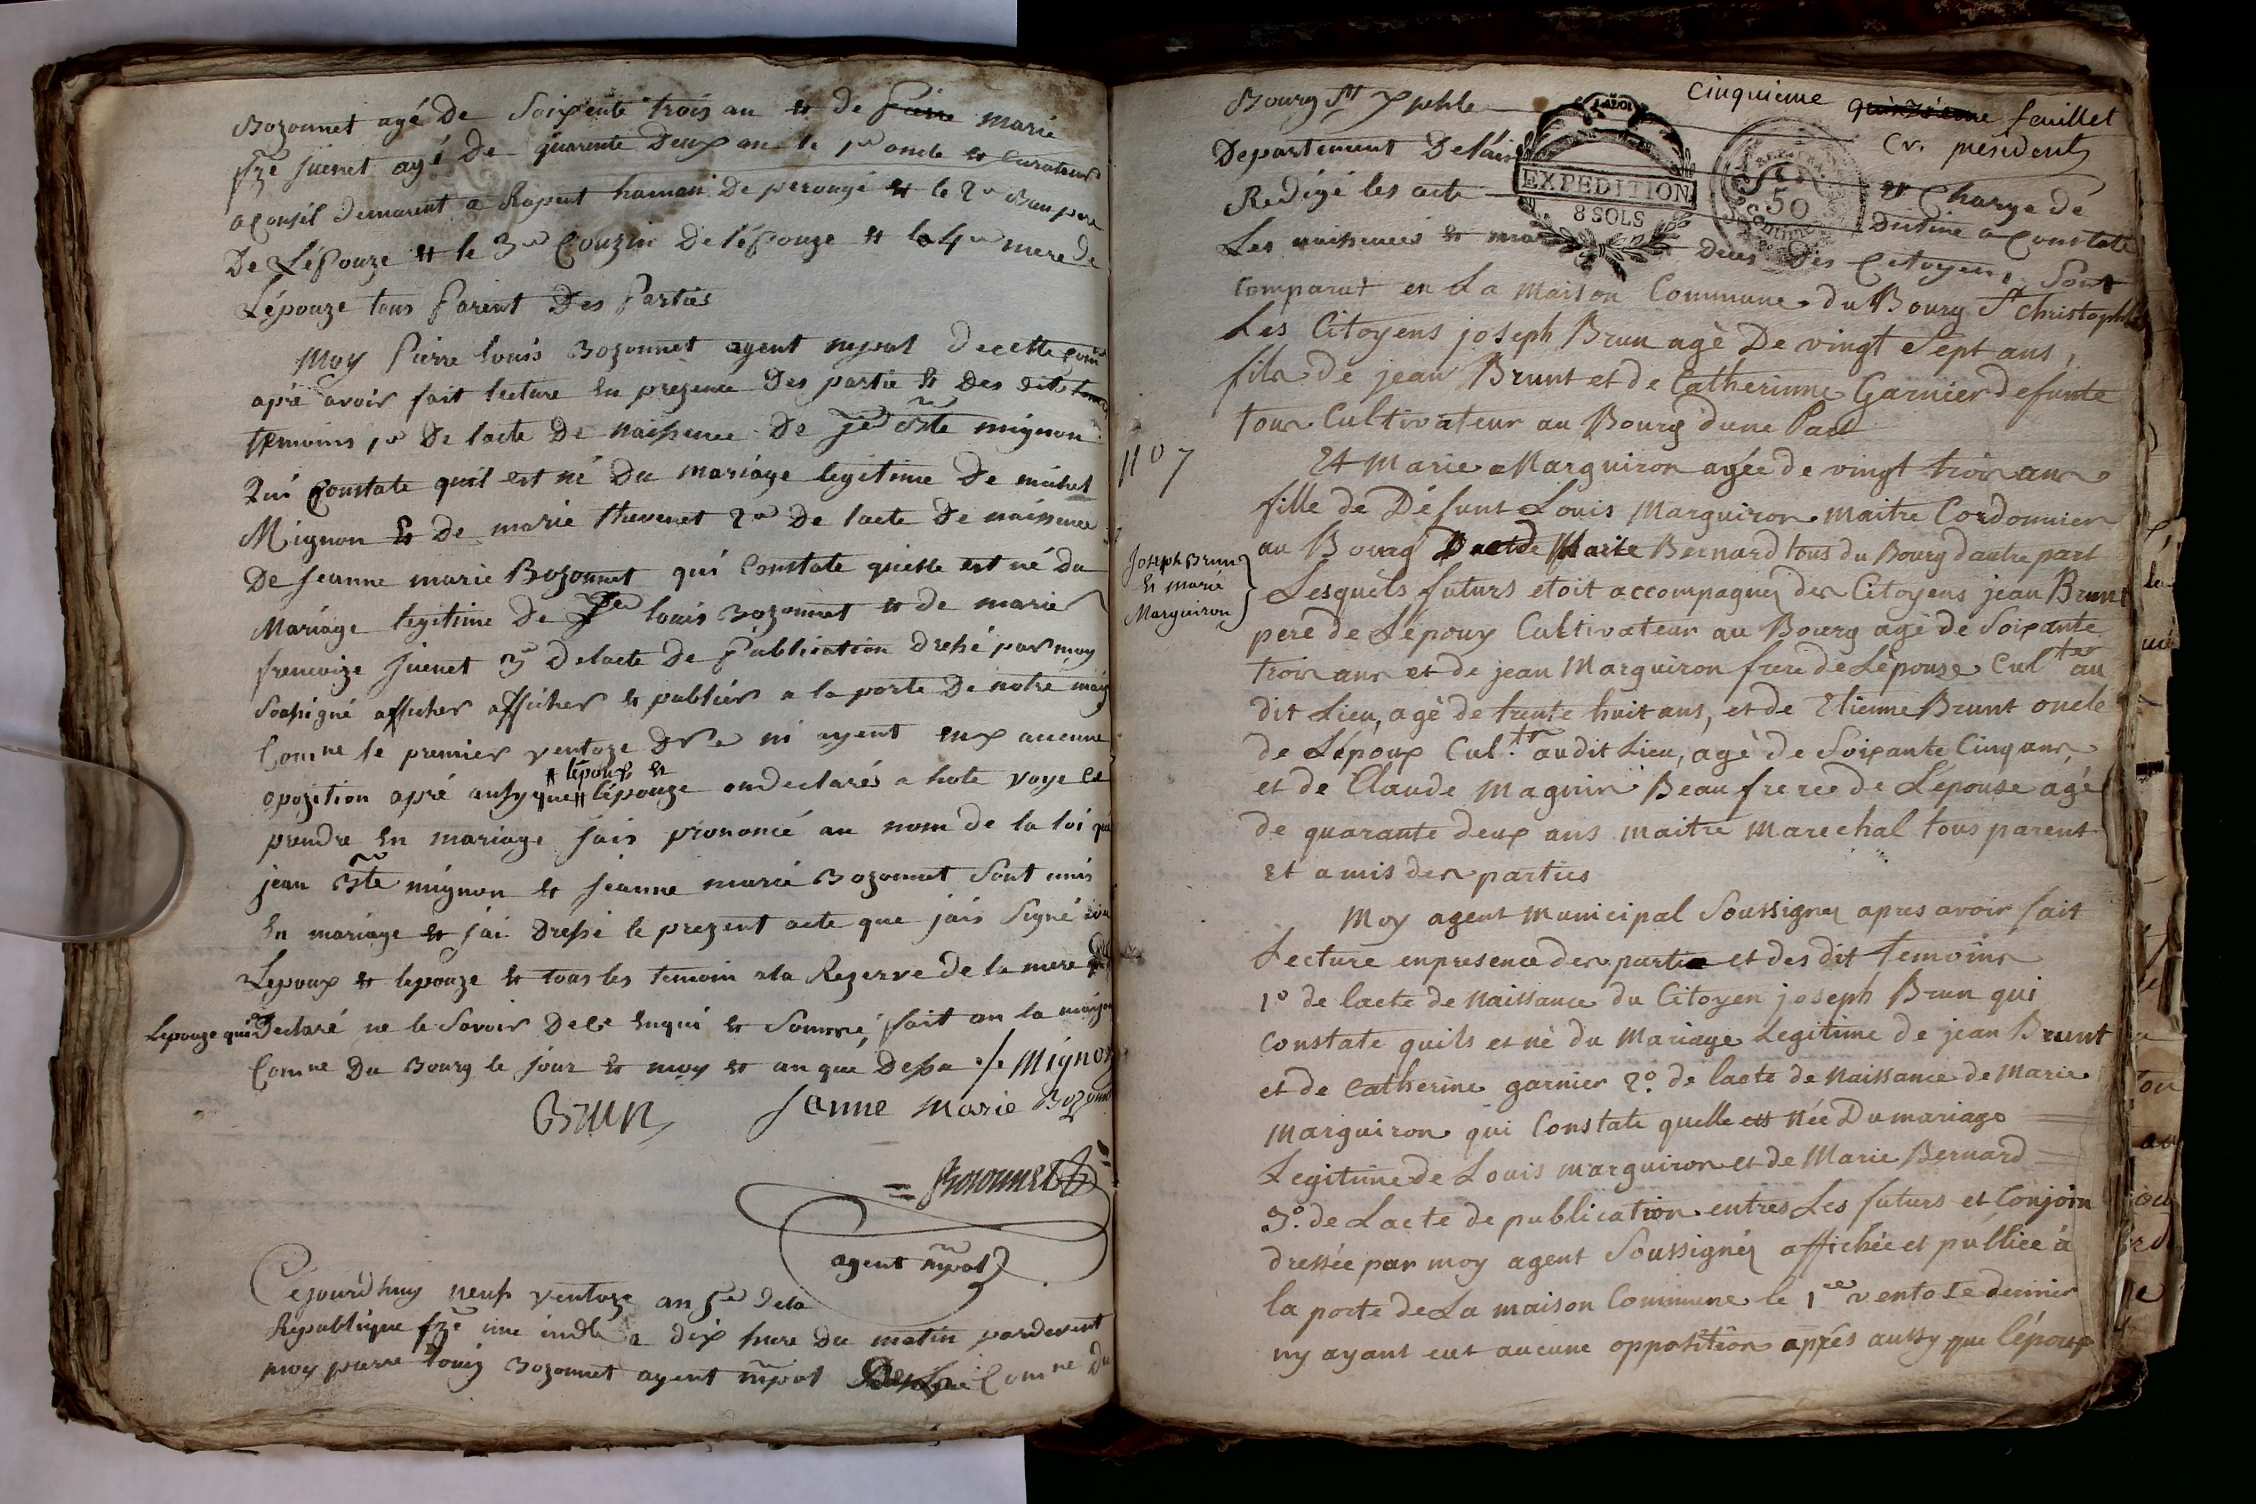 Bozonnet agé De Soixente trois an & de marie
fze juenet agé De quarente Deux an le 1er oncle & curateur
a Conseil demeurent a Rapent hamau De perouge & le 2e Beaupere
De Lépouze & le 3me Couzin De lépouze & la 4me mere de
Lépouze tous Parent Des Parties
Moy Pierre louis Bozonnet agent mpal de cette comne
apré avoir fait lecture En prezence Des partie & Des dits
temoins 1er De lacte De naissence De jean Bte mignon
Qui Constate quil est né Du mariage legitime De michel
Mignon & De marie thevenet 2e De lacte De naissence
De jeanne marie Bozonnet qui Constate quelle est né du
Mariage legitime De Pre louis Bozonnet & de marie
francoize juenet 3 De lacte De Publication Dressé par moy
Soussigné afficher afficher & publier a la porte De notre maizon
Comne le premier ventoze Der ni ayent eux aucune
lépoux &
opozition apré aussy que lépouze on declarés a hote voye ce
prendre En mariage jais prononcé au nom de la loi que
jean Bte mignon & jeanne marie Bozonnet Sont unis
En mariage & jai Dressé le prezent acte que jais Signé
Lepoux & lepouze & tous les temoin a la Rezerve de la mere de
Lepouze qui a Declaré ne le Savoir De ce Enqui & Sommé, fait en la maizon
Comne Du Bourg le jour & moy & an que Dessu J Mignon
Brun Janne Marie Bozonnet
Bozonnet
agent mpal
Cejourd'huy neuf ventoze an 5me dela
Republique fze une indle a dix heure Du matin pardevent
moy pierre louis Bozonnet agent mpal Comne du
Cinquieme quinzieme feuillet
Cr. president
Bourg St Xpchle
Departement Delain & Chargé de
EXPEDITION
8 SOLS
50
Redigé les acte Destiné a Constaté
Les naissences & mariages Deces Des Citoyens, Sont
Comparut en La Maison Commune du Bourg St Christophle
Les Citoyens joseph Brun agé De vingt Sept ans,
fils de jean Brunt et de Catherinne Garnier defunte
tous Cultivateur au Bourg d'une Part
1107
Et Marie Marguiron agée de vingt trois ans
fille de Défunt Louis Marguiron Maitre Cordonnier
au Bourg et de Marie Bernard tous du Bourg dautre part
Joseph Brun
& marie
Marguiron
Lesquels futurs etoit accompagnez des Citoyens jean Brunt
pere de Lépoux Cultivateur au Bourg agé de Soixante
trois ans et de jean Marguiron frere de Lépouse Culter au
dit Lieu, agé de trente huit ans, et de Etienne Brunt oncle
de Lépoux Cultr audit Lieu, agé de Soixante Cinq ans
et de Claude Magnin Beaufrere de Lépouse agé
de quarante deux ans maitre Marechal tous parent
Et amis des parties
Moy agent Municipal Soussignez apres avoir fait
Lecture en presence des partie et des dit temoins
1o de lacte de Naissance du Citoyen joseph Brun qui
Constate quils et né du Mariage Legitime de jean Brunt
et de Catherine garnier 2o. de lacte de Naissance de Marie
Marguiron qui Constate quelle est Née Du mariage
Legitime de Louis marguiron et de Marie Bernard
3o. de Lacte de publication entres Les futurs et Conjoin
dressée par moy agent Soussignéz affichée et publiée à
la porte de La maison Commune le 1er ventose dernier
ny ayant eut aucune opposition aprés aussy que lépoux